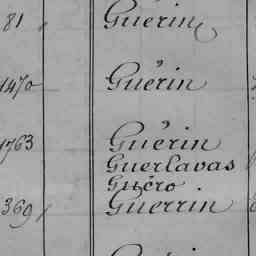 81 Guérin
1470 Guérin
1763 Guérin
Guerlavas
Guéro
369 Guerrin